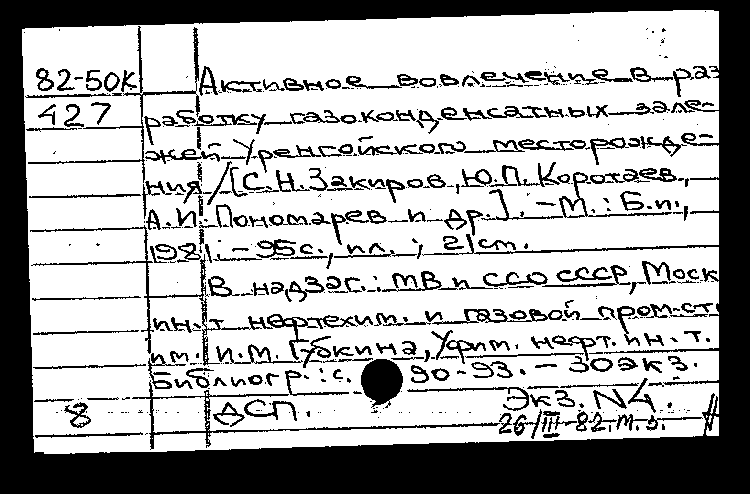 82-50к Активное вовлечение в раз
427 работку газоконденсатных зале-
жей Уренгойского месторожде-
ния / [С.Н. Закиров, Ю.П. Коротаев,
А.И. Пономарев и др.]. - М. : Б.и.,
1981. - 95 с., ил. ; 21 см.
В надзаг.: МВ и ССО СССР, Моск
ин-т нефтехим. и газовой пром-ст
им. И.М. Губкина, Уфим. нефт. ин-т.
Библиогр.: с. 90-93. - 30 экз.
8 ДСП. Экз. N4.
26/III-82.